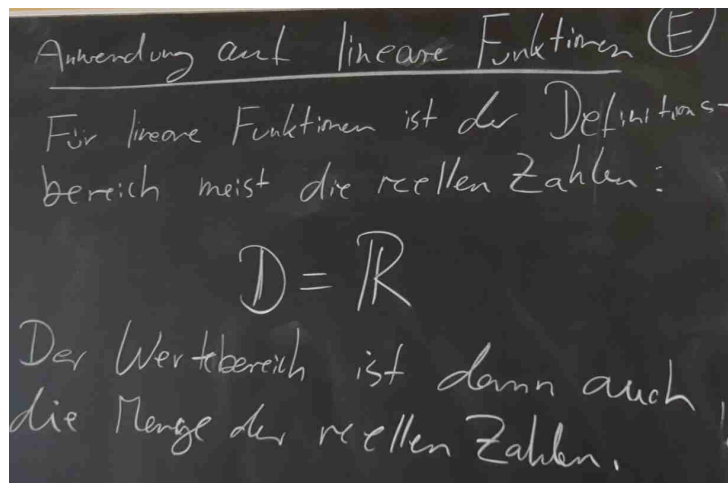 Anwendung auf lineare Funktionen E
Für lineare Funktionen ist der Definitions-
bereich meist die reellen Zahlen:
D = ℝ
Der Wertebereich ist dann auch
die Menge der reellen Zahlen.